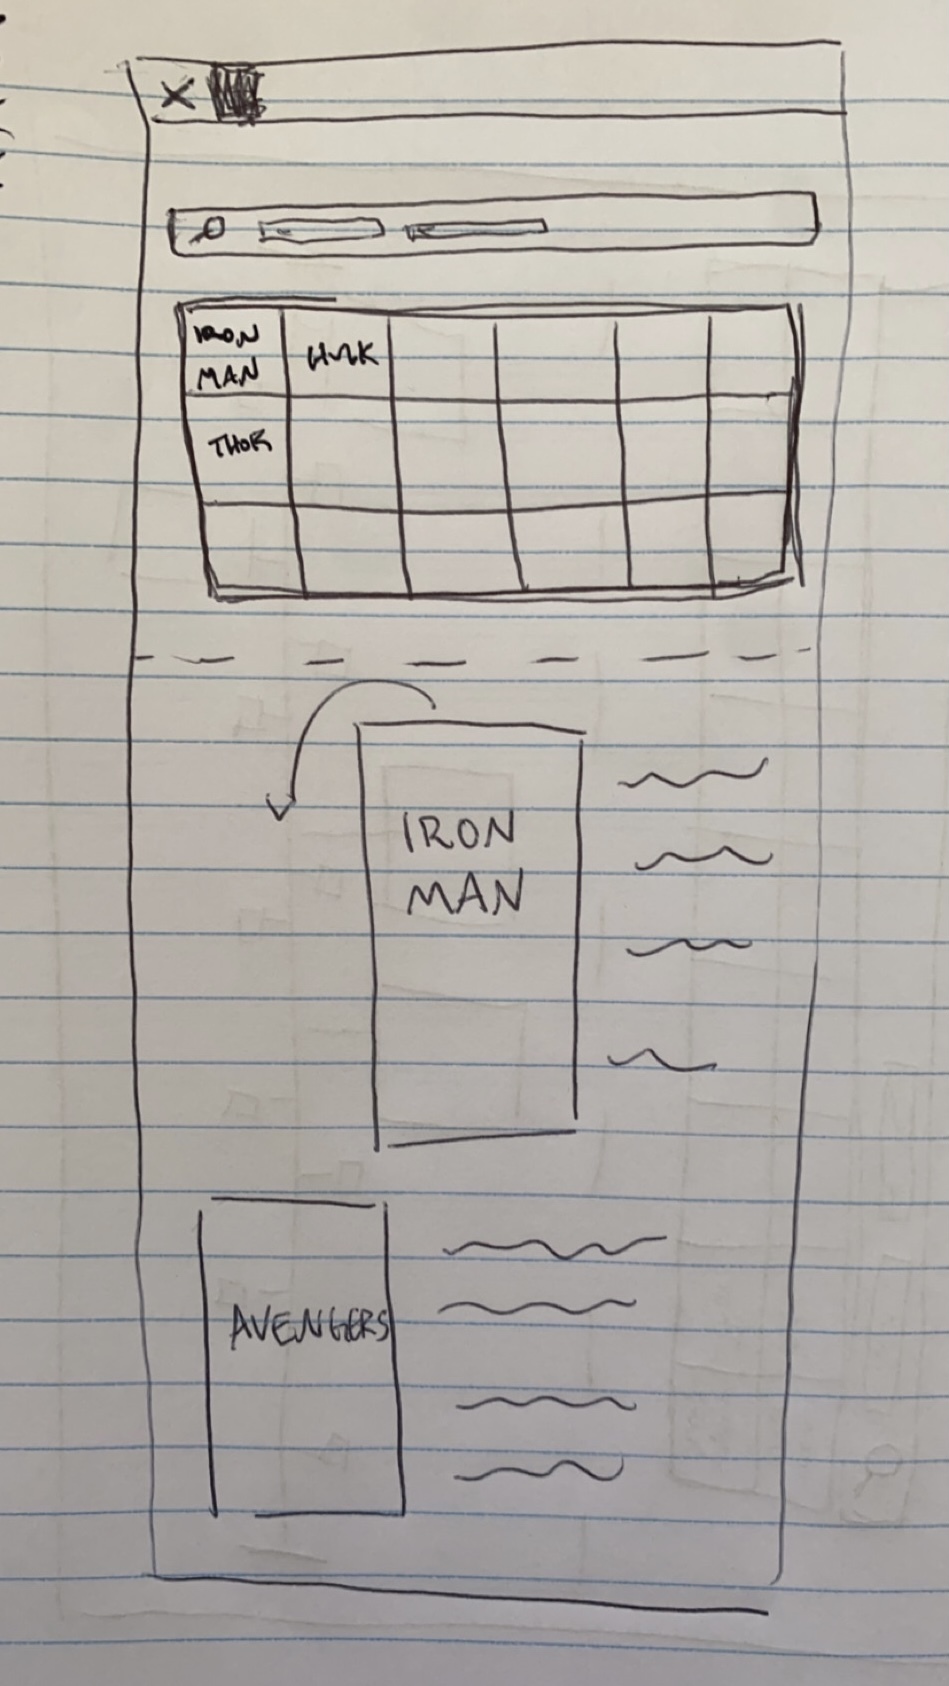 IRON
MAN
HULK
THOR
IRON
MAN
AVENGERS